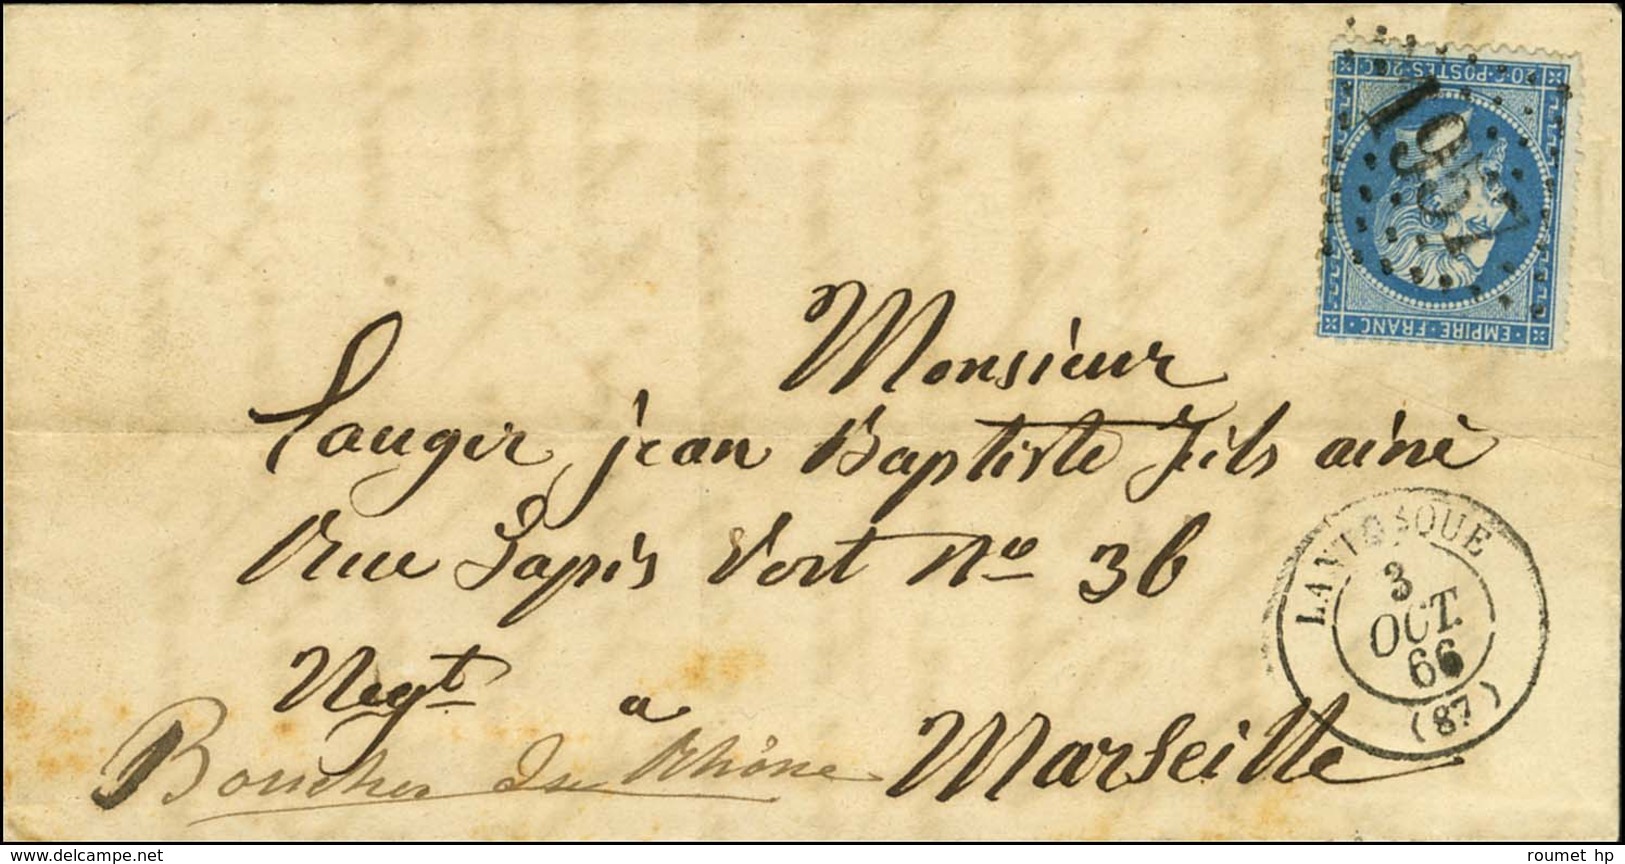 20 C POSTES 20 C
1957
EMPIRE · FRANC ·
Monsieur
Lauger jean Baptiste Fils ainé
Rue Tapis Vert No 36
Negt a Marseille
Bouches du Rhône
LANTOSQUE
3
OCT.
66
(87)
delcampe.net
roumet hp